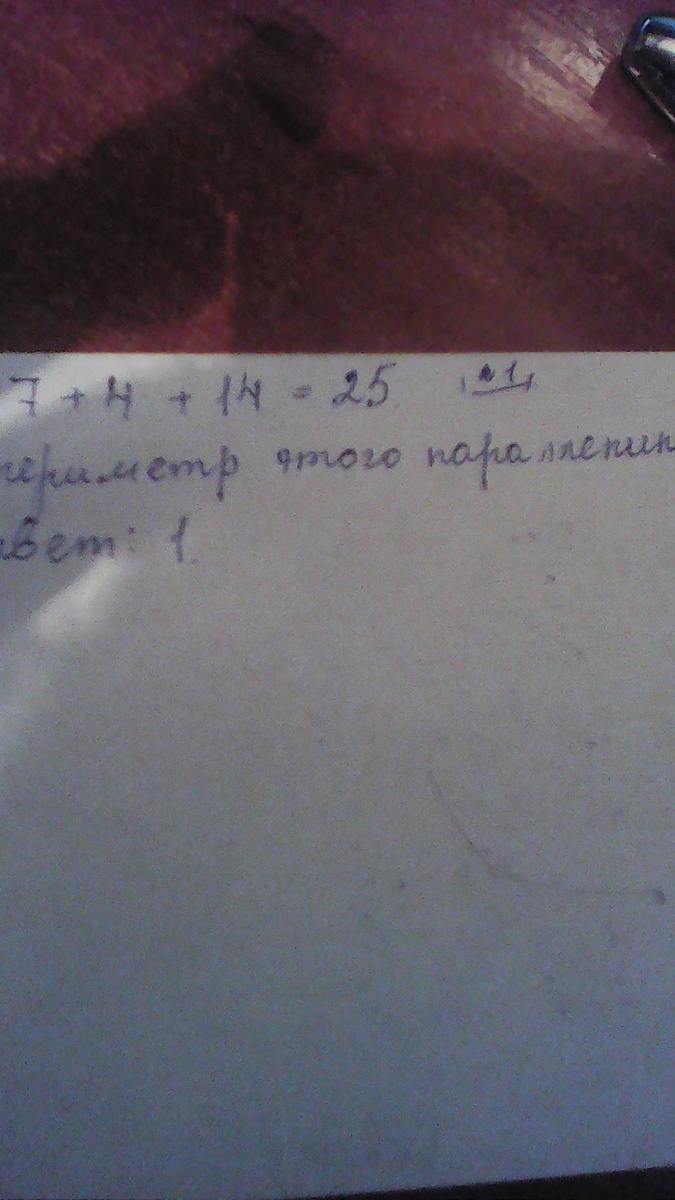 7 + 4 + 14 = 25.
периметр этого параллепип
вет: 1.